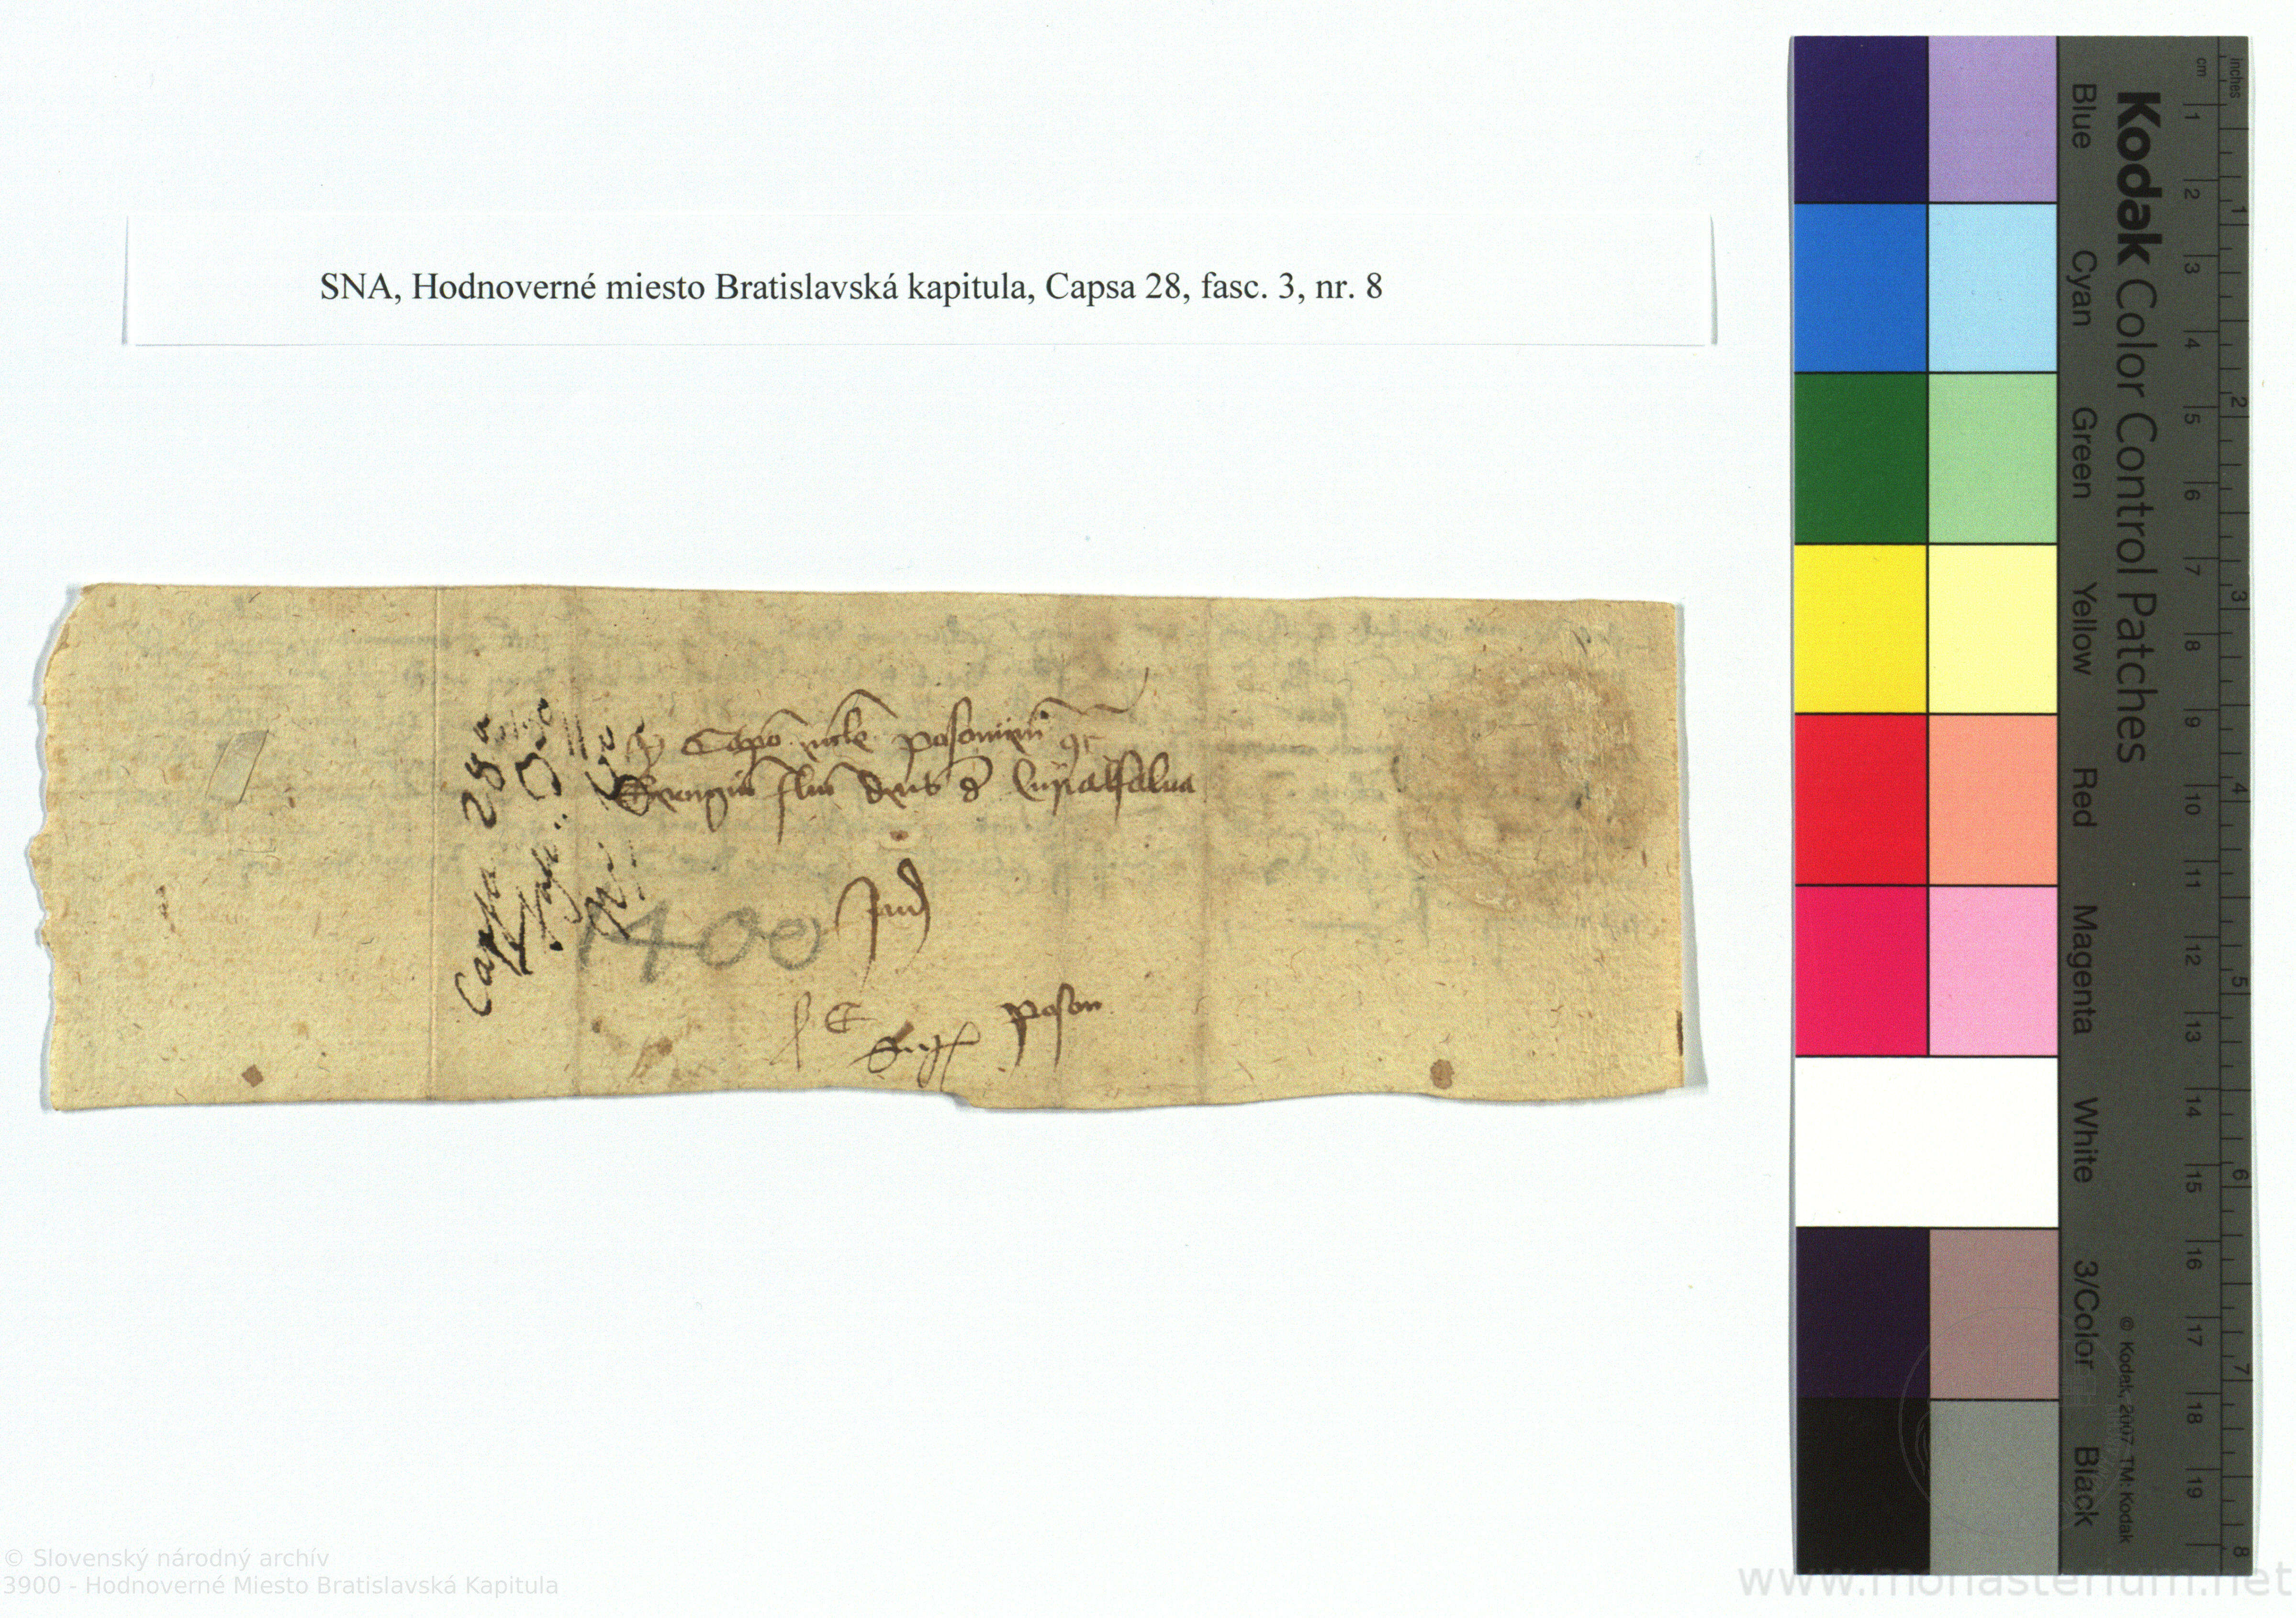 SNA, Hodnoverné miesto Bratislavská kapitula, Capsa 28, fasc. 3, nr. 8
Capo eccle posonien
Georgiu filiu de
Capsa 28
1400
poson
Kodak Color Control Patches
Blue Cyan Green Yellow Red Magenta White 3/Color Black
cm 1 2 3 4 5 6 7 8 9 10 11 12 13 14 15 16 17 18 19
inches 1 2 3 4 5 6 7 8
© Kodak, 2007 TM: Kodak
© Slovenský národný archív
3900 - Hodnoverné Miesto Bratislavská Kapitula
www.monasterium.net